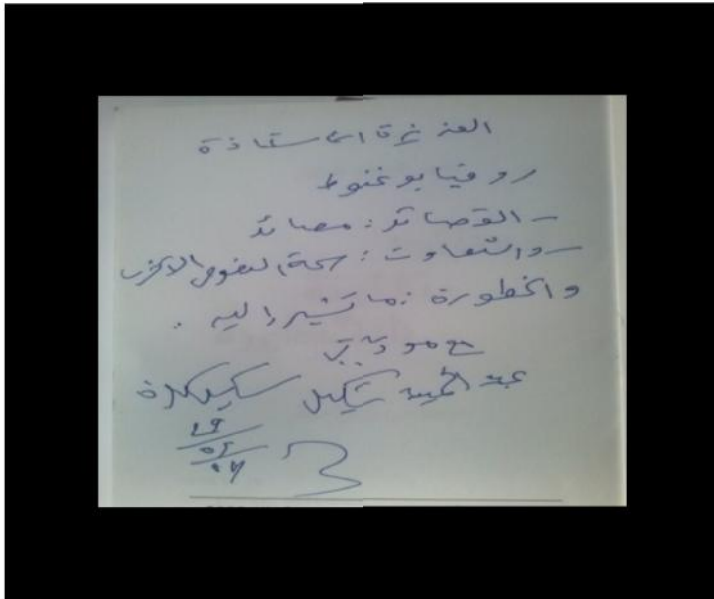 العزيزة الاستاذة
روفيا بوغنوط
ـ القصائد : مصائد
ـ والتفاوت : سمة النصوص الاكثر
والخطورة : ما تشير إليه .
مع مودتي
عبد الحميد شكيل سكيكدة